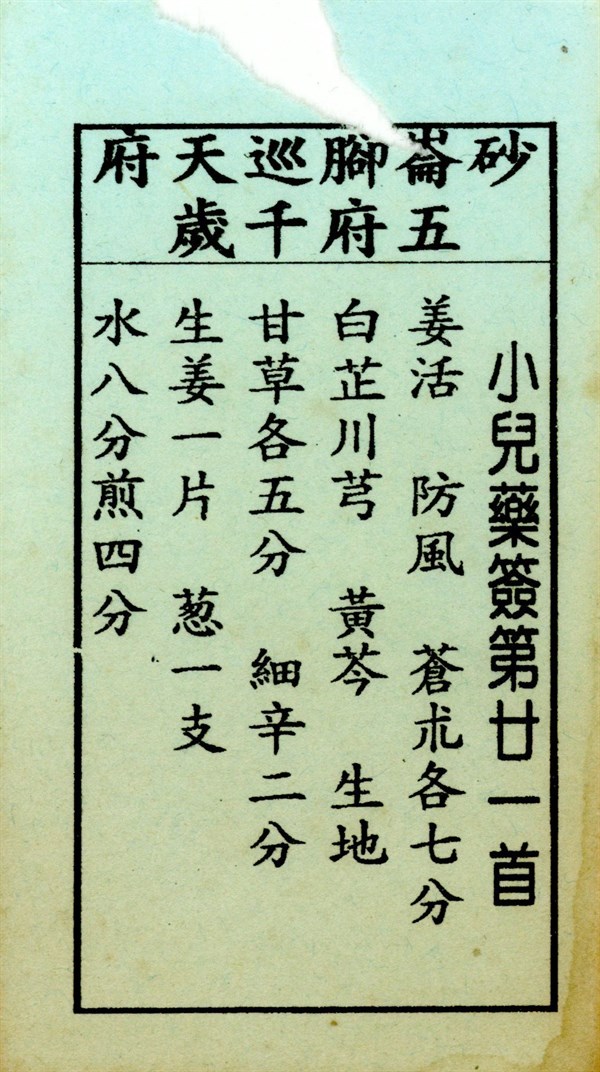 砂崙腳巡天府
五府千歲
小兒藥簽第廿一首
姜活 防風 蒼朮各七分
白芷川芎 黃芩 生地
甘草各五分 細辛二分
生姜一片 葱一支
水八分煎四分